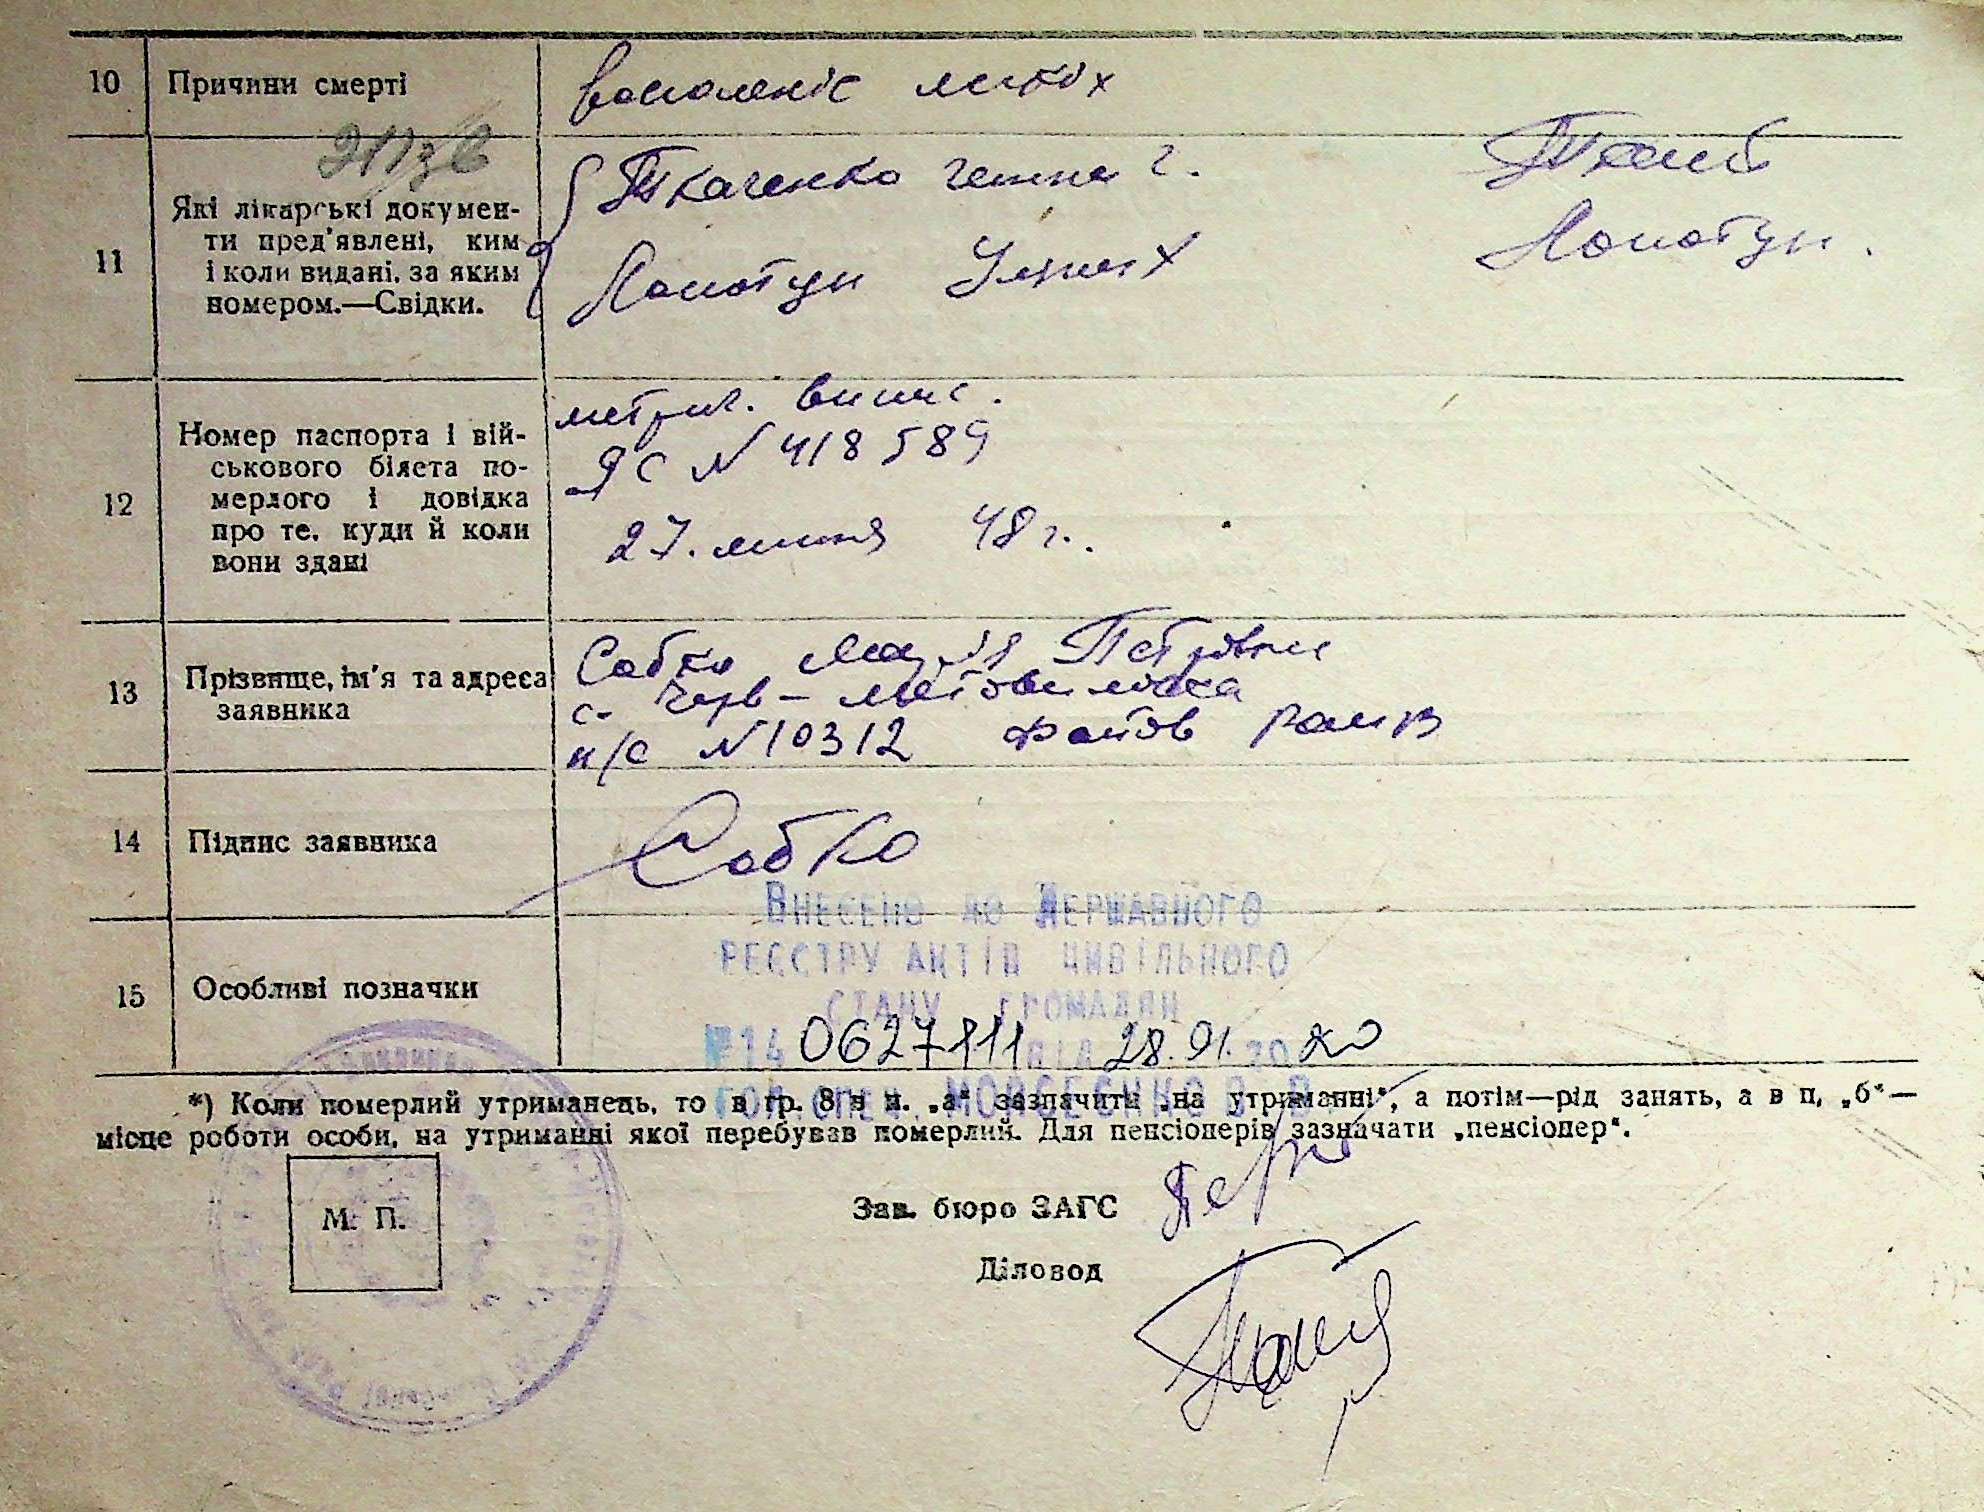 10 Причини смерті
воспаленіє
11 Які лікарські докумен-
ти пред'явлені, ким
і коли видані, за яким
номером.—Свідки.
Ткаченко
Лопотун
Лопотун
12 Номер паспорта і вій-
ськового білета по-
мерлого і довідка
про те, куди й коли
вони здані
метрич. випис.
ЯС N 418589
27. липня 48 г.
13 Прізвище, ім'я та адреса
заявника
Собко Марія Петрівна
с. Черв-
п/с N 10312
14 Підпис заявника
Собко
15 Особливі позначки
Внесено до Державного
реєстру актів цивільного
стану громадян
№14 0627111 від 28.01.2020
*) Коли померлий утриманець, то в гр. 8 в п. „а“ зазначити „на утриманні“, а потім—рід занять, а в п. „б“—
місце роботи особи, на утриманні якої перебував померлий. Для пенсіонерів зазначати „пенсіонер“.
М. П.
Зав. бюро ЗАГС
Діловод